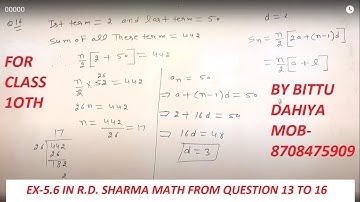 Q16 Ist term = 2 and last term = 50
d = ?
Sum of all these term = 442
n/2 [2 + 50] = 442
n/2 × 52 26 = 442
26n = 442
n = 442/26 = 17
17
26 | 442
26
182
an = 50
⇒ a + (n-1)d = 50
⇒ 2 + 16d = 50
⇒ 16d = 48
d = 3
Sn = n/2 [2a + (n-1)d]
= n/2 [a + l]
FOR
CLASS
1OTH
BY BITTU
DAHIYA
MOB-
8708475909
EX-5.6 IN R.D. SHARMA MATH FROM QUESTION 13 TO 16